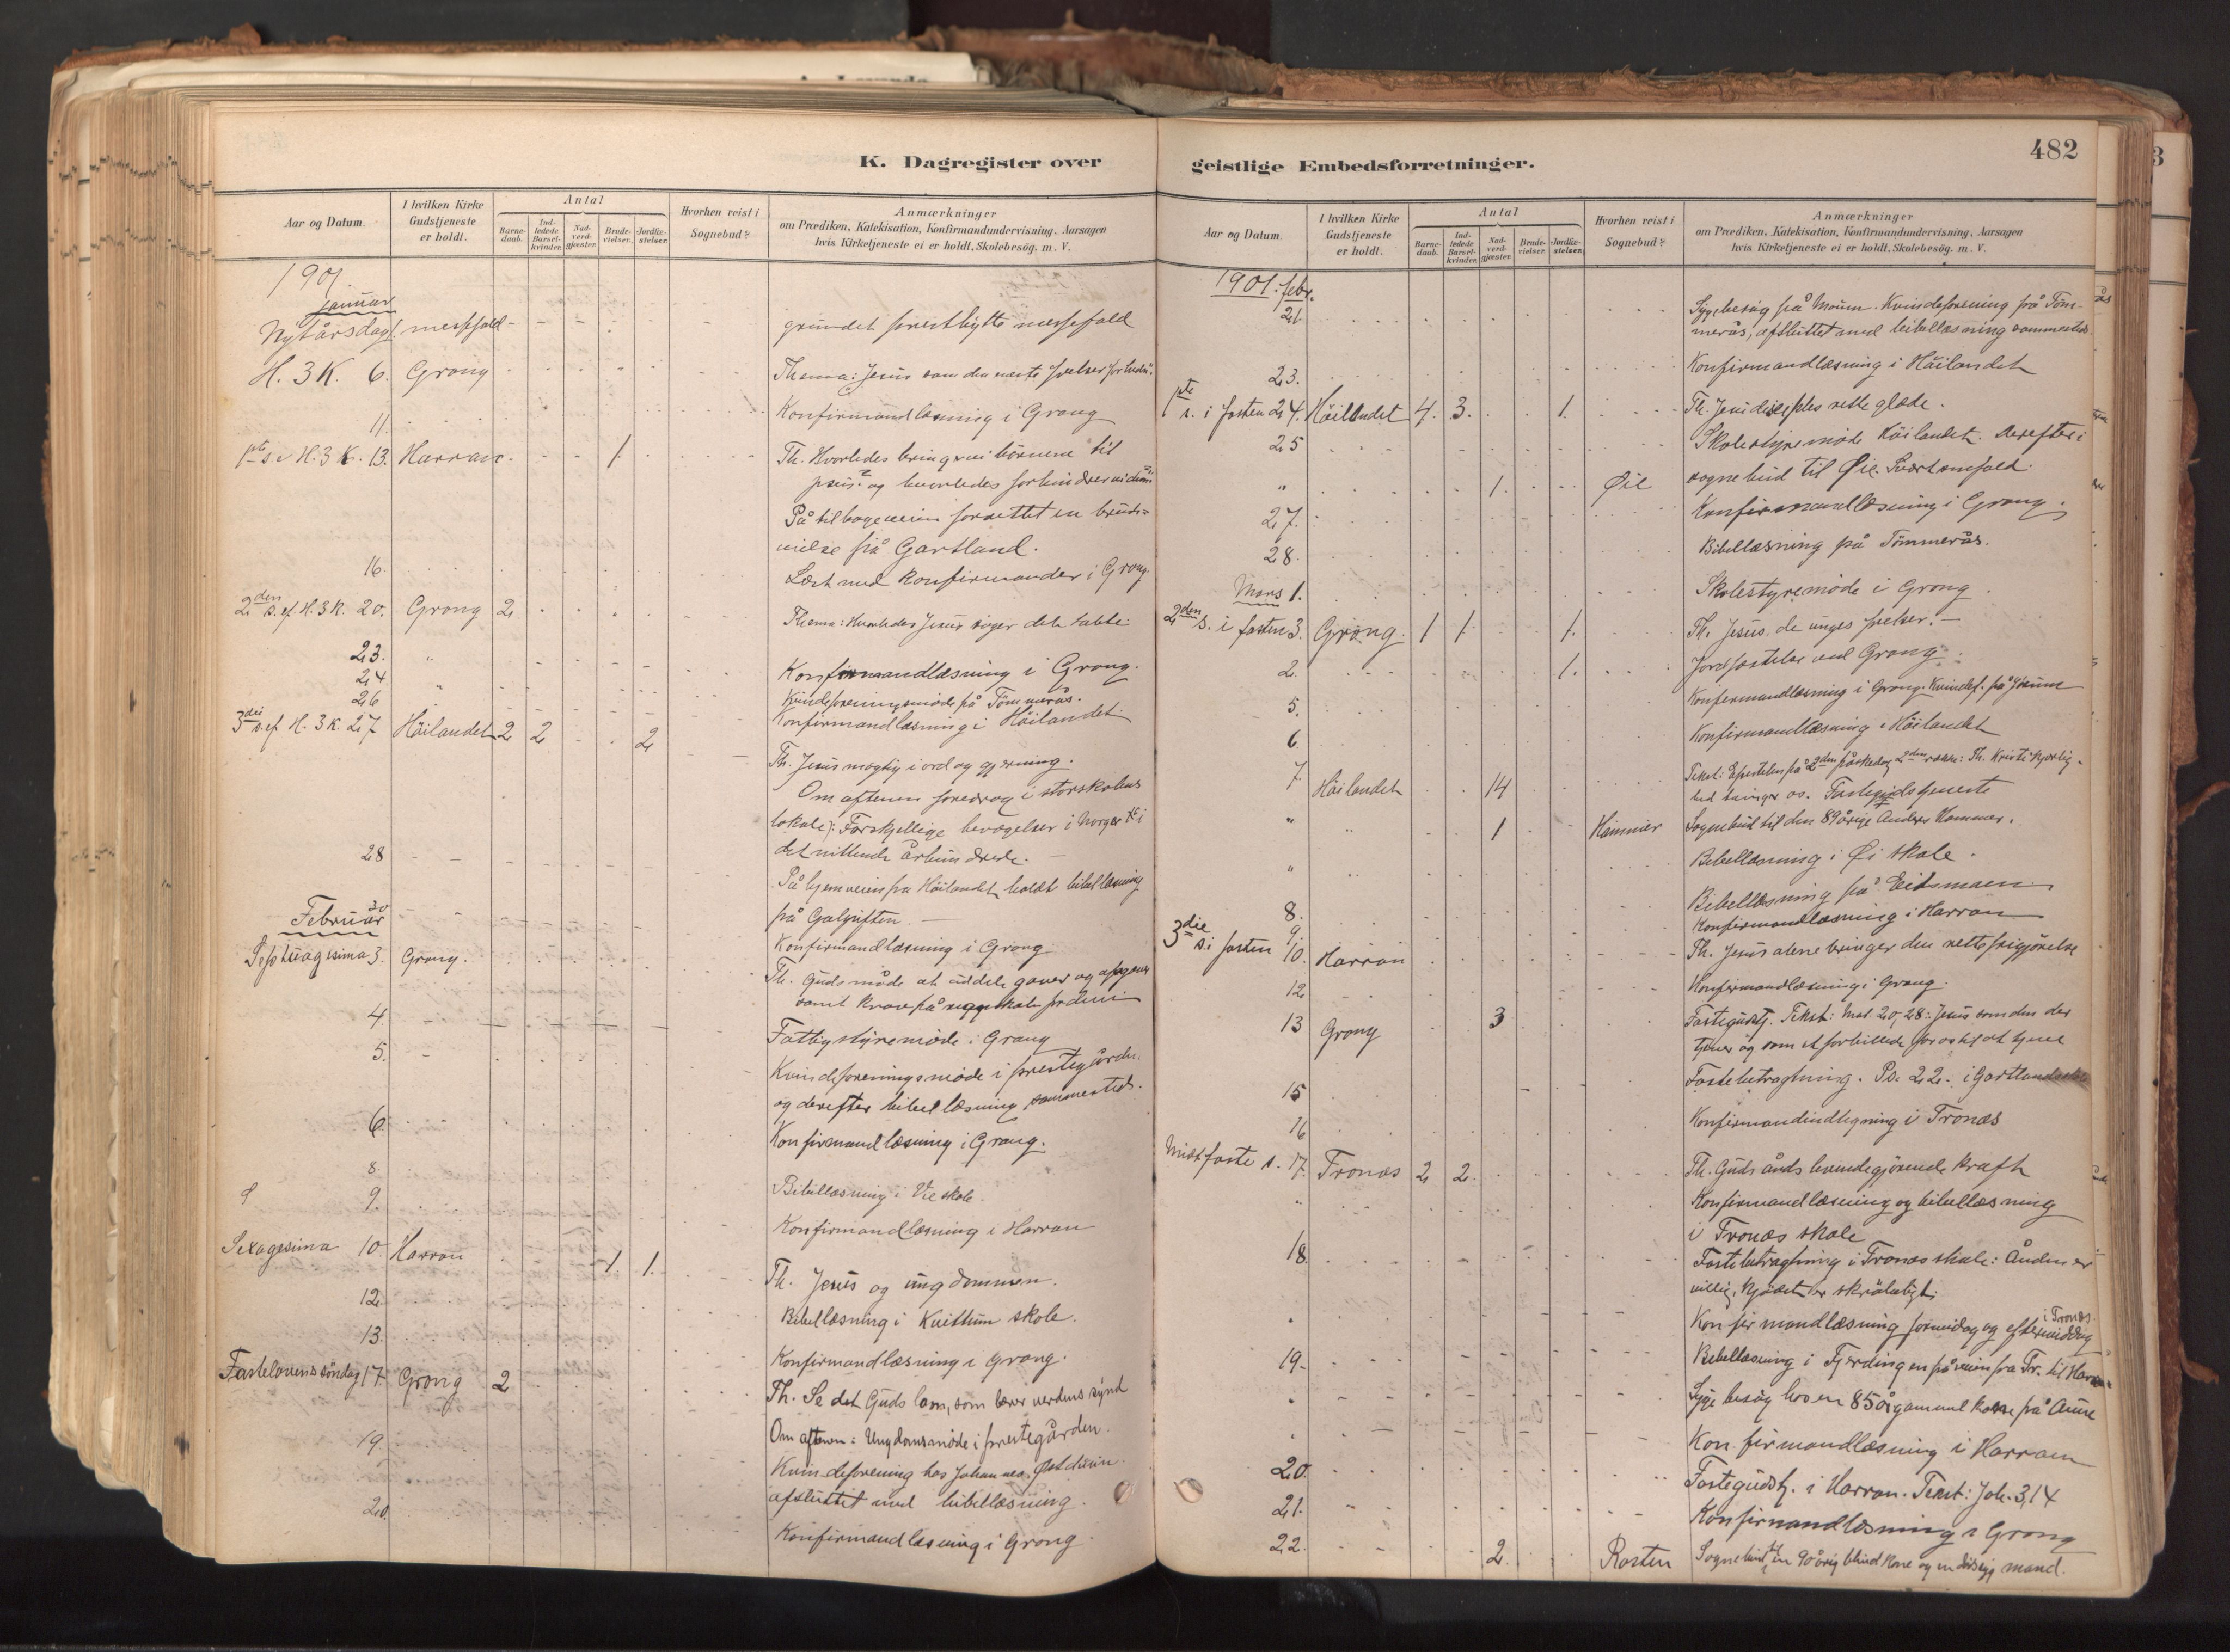 K. Dagregister over
Aar og Datum.
I hvilken Kirke Gudstjeneste er holdt.
Antal
Barne-daab.
Ind-ledede Barsel-kvinder.
Nad-verd-gjæster.
Brude-vielser.
Jordfæ-stelser
Hvorhen reist i Sognebud?
Anmærkninger
om Prædiken, Katekisation, Konfirmandundervisning, Aarsagen
hvis Kirketjeneste ei er holdt, Skolebesög. m. V.
1901.
januar
Nytårsdag messefald grundet messefald
H. 3 K. 6. Grong Thema: Jesus som den
11. Konfirmandlæsning i Grong
1ste s. e. H. 3 K. 13. Harran. 1. Th. Hvorledes bringer vi börnene til
jesus? og hvorledes forhindrer vi dem
På tilbageveien forrettet en brude-
vielse på Gartland.
16. Læst med konfirmander i Grong
2den s. ef. H. 3 K. 20. Grong 2 Thema: Hvorledes Jesus söger det tabte
23. Konfirmandlæsning i Grong.
24 Kvindeforeningsmöde på Tömmerås.
26 Konfirmandlæsning i Höilandet
3die s. ef H. 3 K. 27 Höilandet 2 2 2 Th. Jesus mægtig i ord og gjerning.
Om aftenen foredrag i storskolens
lokale: Forskjellige bevægelser i Norges k. i
det nittende århundrede.
28 På hjemveien fra Höilandet holdt bibellæsning
på Galgiften.
30 Konfirmandlæsning i Grong
Februar
Septuagesima 3. Grong. Th. Guds måde at uddele gaver og opgaver
samt krav på
4. Fattigstyremöde i Grong
5. Kvindeforeningsmöde i prestegården
og derefter bibellæsning sammesteds.
6. Konfirmandlæsning i Grong.
8. Bibellæsning i Vie skole.
9. Konfirmandlæsning i Harran
Sexagesima 10. Harran 1. 1. Th. Jesus og ungdommen.
12. Bibellæsning i Kvittum skole.
13. Konfirmandlæsning i Grong.
Fastelavens söndag 17. Grong 2 Th. Se det Guds lam, som bærer verdens synd
Om aftenen: Ungdomsmöde i prestegården.
19 Kvindeforening hos Johannes
afsluttet med bibellæsning.
20. Konfirmandlæsning i Grong
geistlige Embedsforretninger.
482
Aar og Datum.
I hvilken Kirke Gudstjeneste er holdt.
Antal
Barne-daab.
Ind-ledede Barsel-kvinder.
Nad-verd-gjæster.
Brude-vielser.
Jordfæ-stelser.
Hvorhen reist i Sognebud?
Anmærkninger
om Prædiken, Katekisation, Konfirmandundervisning, Aarsagen
hvis Kirketjeneste ei er holdt, Skolebesög. m. V.
1901. febr.
21. Sygebesög på Moum. Kvindeforening på Töm-
merås, afsluttet med bibellæsning sammesteds
23. Konfirmandlæsning i Höilandet
1ste s. i fasten 24. Höilandet 4. 3. 1. Th. Jesu disciples rette glæde.
25 Skolestyremöde Höilandet. Derefter i
" 1. Øie sognebud til Øie.
27. Konfirmandlæsning i Grong.
28. Bibellæsning på Tömmerås.
Mars 1. Skolestyremöde i Grong.
2den s. i fasten 3. Grong. 1 1 1. Th. Jesus de unges frelser.
2. 1. Jordfæstelse ved Grong
5. Konfirmandlæsning i Grong. Kvindef. på Jörum
6. Konfirmandlæsning i Höilandet
7. Höilandet 14 Tekst: Epistelen på 2den påskedag 2den række: Th. Kristi kjærlig-
hed tvinger os. Fastegudstjeneste
" " 1 Hammer Sognebud til den 89årige Anders Hammer.
" Bibellæsning i Øi skole.
8. Bibellæsning på Eidsmoen
9. Konfirmandlæsning i Harran
3die s. i fasten 10. Harran Th. Jesus alene bringer den rette frigjörelse
12 Konfirmandlæsning i Grong.
13 Grong 3 Fastegudstj. Tekst: Mat. 20,28: Jesus som den der
tjener og som et forbillede for os til at tjene
15 Fastebetragtning. Ps. 22. i Gartlands skole
16 Konfirmandindtegning i Tronæs
Midtfaste s. 17. Tronæs 2 2. Th. Guds ånds levendegjörende kraft
" Konfirmandlæsning og bibellæsning
i Tronæs skole
18. Fastebetragtning i Tronæs skole: Ånden er
villig, kjödet er skröbeligt.
Konfirmandlæsning formidag og eftermiddag i Tronæs.
19. Bibellæsning i Fjerdingen på veien fra Tr. til Harran
Sygebesög hos en 85 år gammel kone på Aune
Konfirmandlæsning i Harran
20. Fastegudstj. i Harran. Tekst: Joh. 3,14
21. Konfirmandlæsning i Grong
22. 2 Rosten Sognebud til en 90årig blind kone og en dödssyg mand.